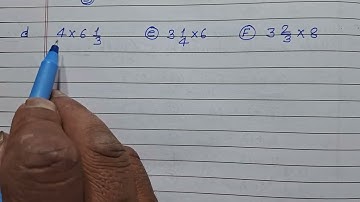 d 4 × 6 1/3 ⓔ 3 1/4 × 6 Ⓕ 3 2/3 × 8